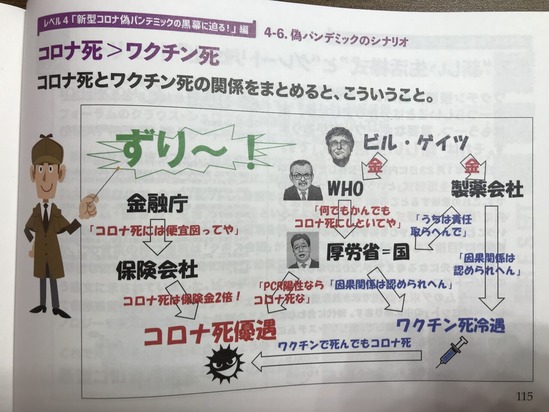 レベル4「新型コロナ偽パンデミックの黒幕に迫る!」編
4-6. 偽パンデミックのシナリオ
コロナ死>ワクチン死
コロナ死とワクチン死の関係をまとめると、こういうこと。
ずり〜!
ビル・ゲイツ
金
金
WHO
製薬会社
金融庁
「コロナ死には便宜図ってや」
「何でもかんでも
コロナ死にしといてや」
「うちは責任
取らへんで」
保険会社
厚労省=国
コロナ死は保険金2倍!
「PCR陽性なら
コロナ死な」
「因果関係は認められへん」
「因果関係は
認められへん」
コロナ死優遇
ワクチン死冷遇
ワクチンで死んでもコロナ死
115